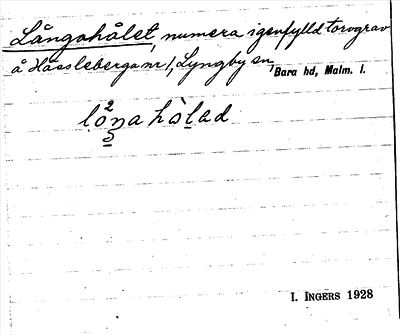 Långahålet, numera igenfylld torvgrav
å Hässleberga nr 1, Lyngby sn, Bara hd, Malm. l.
lo²ŋa hòlad
I. INGERS 1928